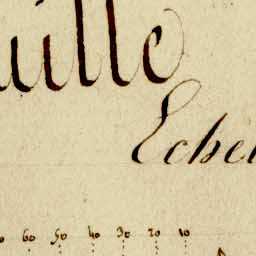 uille
Echel
60 50 40 30 20 10